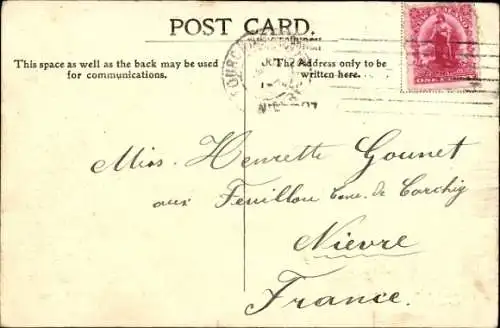 POST CARD.
This space as well as the back may be used
for communications.
The Address only to be
written here.
ONE PENNY
Miss. Henrette Gounet
aux Feuillou Cne. de Corchig
Nievre
France.